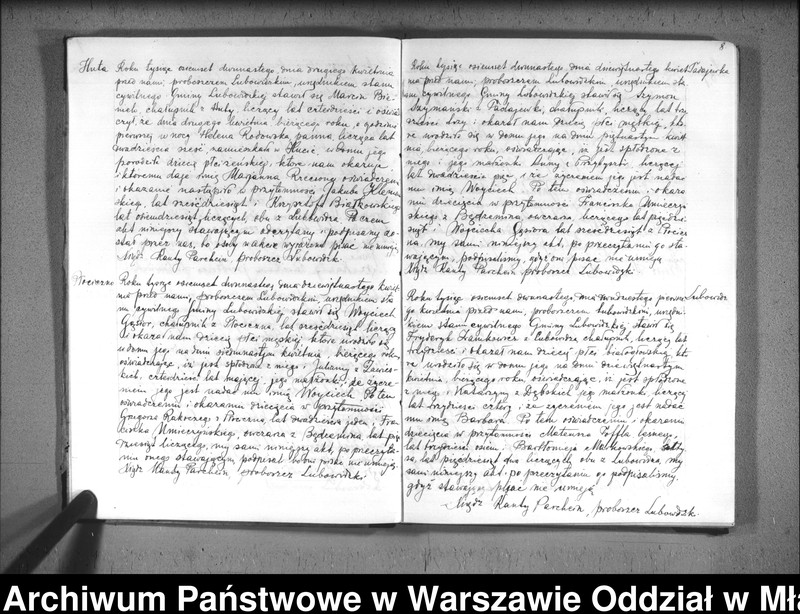 Huta Roku tysiąc osiemset dwunastego, dnia drugiego kwietnia
przed nami, proboszczem Lubowidzkim, urzędnikiem stanu
cywilnego Gminy Lubowidzkiej stawił się Marcin
chałupnik z Huty liczący lat czterdzieści i oświad
czył, że dnia drugiego kwietnia bieżącego roku, o godzinie
pierwszej w nocy Helena panna licząca lat
dwadzieścia sześć, zamieszkała w Hucie, w domu jego
porodziła dziecię płci żeńskiej, które nam okazuje
i któremu daje imię Marjanna Rzeczony oświadczenie
i okazanie nastąpiło w przytomności Jakuba
skiego, lat sześćdziesiąt i Krzysztofa Białkowskiego
lat osiemdziesiąt, liczących, obu z Lubowidza. Poczem
akt niniejszy stawającym odczytany i podpisany zo-
stał przez nas, bo osoby w akcie wyrażone pisać nie umieją.
Xiądz Kanty Parchem proboszcz Lubowidzk.
Roku tysiąc osiemset dwunastego, dnia dziewiętnastego kwiet
nia przed nami, proboszczem Lubowidzkim, urzędnikiem sta
nu cywilnego Gminy Lubowidzkiej, stawił się Woyciech
Gąsior, chałupnik z lat sześćdziesiąt liczący
i okazał nam dziecię płci męskiej, które urodziło się
w domu jego na dniu siedemnastym kwietnia bieżącego roku
oświadczając, iż jest spłodzone z niego i Julianny z
kich, czterdzieści lat mającej, jego małżonki, że życze-
niem jego jest nadać mu imię Woyciech. Po tem
oświadczeniu i okazaniu dziecięcia w przytomności
Grzegorza z lat dwadzieścia jeden i Fran
ciszka Umieczyńskiego, owczarza z Będzemina lat pięć
dziesiąt liczącego, my sami niniejszy akt, po przeczyta-
niu onego stawającym podpisali, bowiem pisać nie umieją.
Xiądz Kanty Parchem, proboszcz Lubowidzki.
8
Roku tysiąc osiemset dwunastego, dnia dziewiętnastego kwiet Zadajewka
nia przed nami, proboszczem Lubowidzkim, urzędnikiem sta
nu cywilnego Gminy Lubowidzkiej stawił się Szymon
Szymański z chałupnik, liczący lat trzy
dzieści trzy i okazał nam dziecię płci męskiej, któ
re urodziło się w domu jego na dniu piętnastym kwiet
nia, bieżącego roku, oświadczając, iż jest spłodzone z
niego i jego małżonki Anny z liczącej
lat dwadzieścia pięć i że życzeniem jego jest nadać
mu imię Woyciech. Po tem oświadczeniu i okaza
niu dziecięcia w przytomności Franciszka Umieczyń
skiego z Będzemina owczarza, liczącego lat pięćdzie
siąt i Woyciecha Gąsiora lat sześćdziesiąt z
na, my sami niniejszy akt, po przeczytaniu go sta-
wającym, podpisaliśmy, gdyż oni pisać nie umieją
Xiądz Kanty Parchem proboszcz Lubowidzki.
Roku tysiąc osiemset dwunastego, dnia dwudziestego pierwsze Lubowidz
go kwietnia przed nami, proboszczem Lubowidzkim, urzędni-
kiem stanu cywilnego Gminy Lubowidzkiej stawił się
Fryderyk z Lubowidza chałupnik, liczący lat
trzydzieści i okazał nam dziecię płci białogłowskiej, któ
re urodziło się w domu jego na dniu dziewiętnastym
kwietnia, bieżącego roku, oświadczając, iż jest spłodzone
z niego i Katarzyny z jego małżonki, liczącej
lat trzydzieści cztery i że życzeniem jego jest nadać
mu imię Barbara. Po tem oświadczeniu i okazaniu
dziecięcia w przytomności Mateusza leśnego,
lat trzydzieści osiem, i Bartłomieja
lat pięćdziesiąt dwa liczącego, obu z Lubowidza, my
sami niniejszy akt, po przeczytaniu go podpisaliśmy,
gdyż stawający pisać nie umieją
Xiądz Kanty Parchem, proboszcz Lubowidzk.
Archiwum Państwowe w Warszawie Oddział w Mł